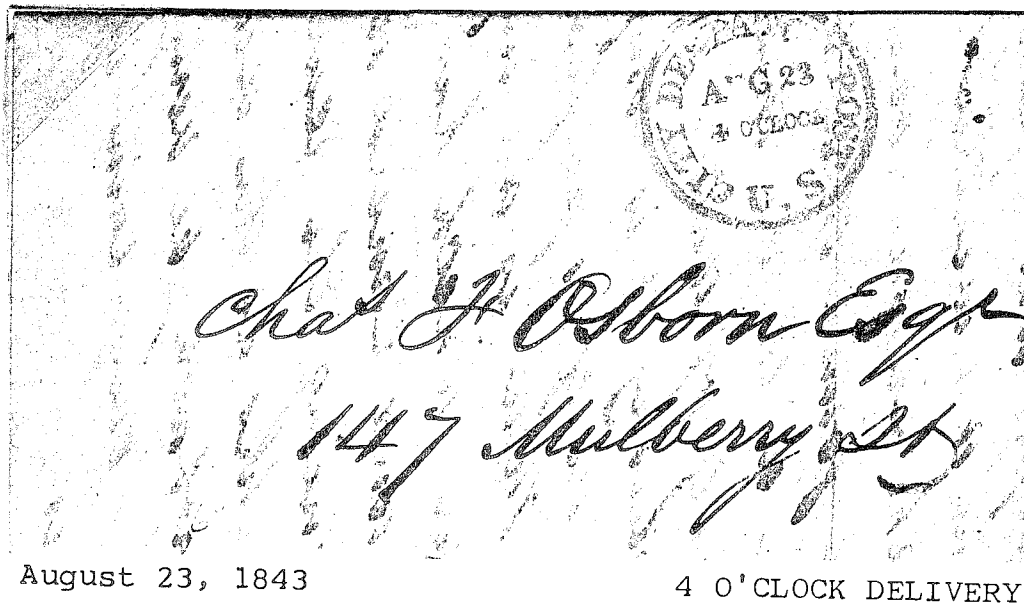 CITY DESPATCH POST
AUG 23
4 O'CLOCK
U.S
Chas F Osborn Esqr
147 Mulberry St
August 23, 1843
4 O'CLOCK DELIVERY